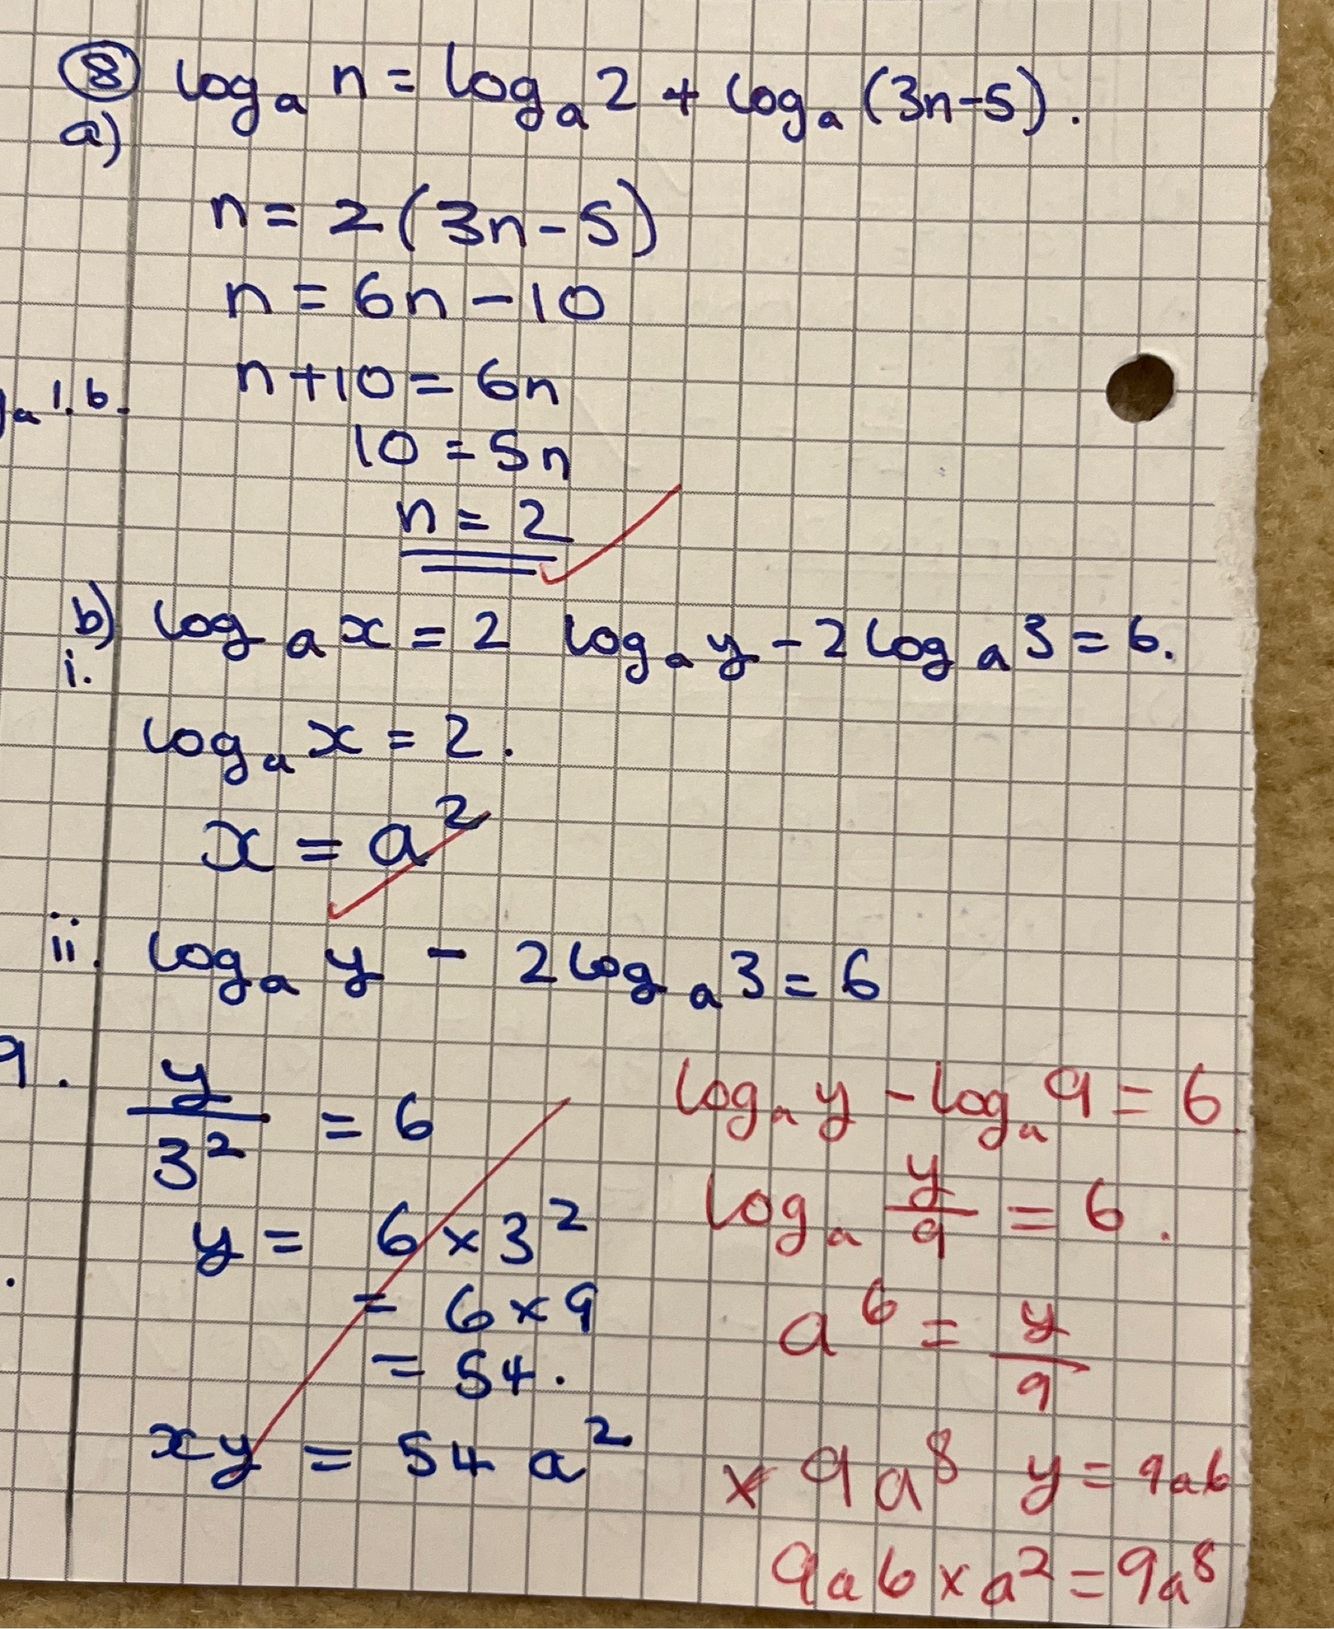 ⑧ logₐ n = logₐ 2 + logₐ (3n-5).
a)
n = 2(3n-5)
n = 6n - 10
n+10 = 6n
ₐ 1.b.
10 = 5n
n = 2
b) logₐ x = 2 logₐ y - 2logₐ 3 = 6.
i.
logₐ x = 2.
x = a²
ii. logₐ y - 2logₐ 3 = 6
9.
y/3² = 6
y = 6 × 3²
= 6×9
= 54.
xy = 54 a²
logₐ y - logₐ 9 = 6
logₐ y/9 = 6.
a⁶ = y/9
× 9a⁸ y = 9a6
9a6 × a² = 9a⁸